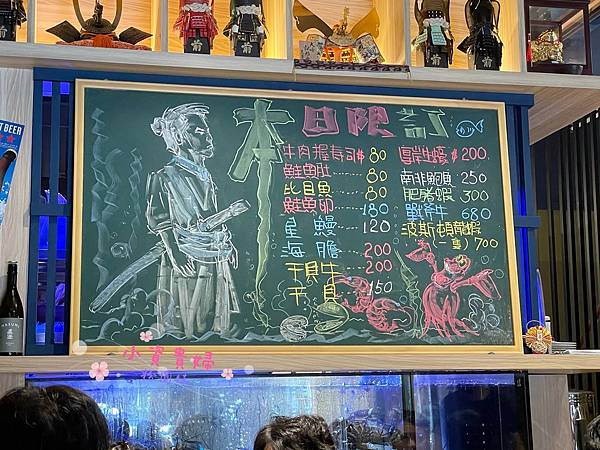 本日限訂
牛肉握壽司$80
鮭魚肚 80
比目魚 80
鮭魚卵 180
星鰻 120
海膽 200
干貝牛 200
干貝 150
$200.
南非鮑 250
肥豬蝦 300
戰斧牛 680
波斯頓龍蝦
(一隻) 700
小資貴婦
BEER